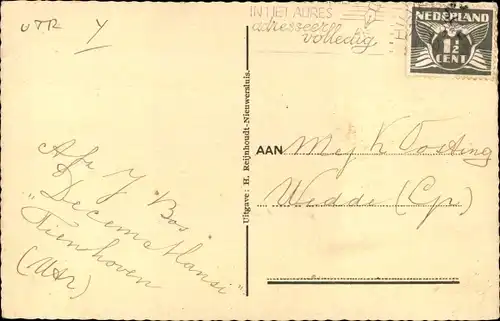 UTR Y
INT JET ADRES
adresseer
volledig
NEDERLAND
1½
CENT
Uitgave: H. Reijnhoudt-Nieuwersluis.
AAN Mej K Oosting
Wedde (Gr.)
Afz J. Bos
Tienhoven
(Utr)